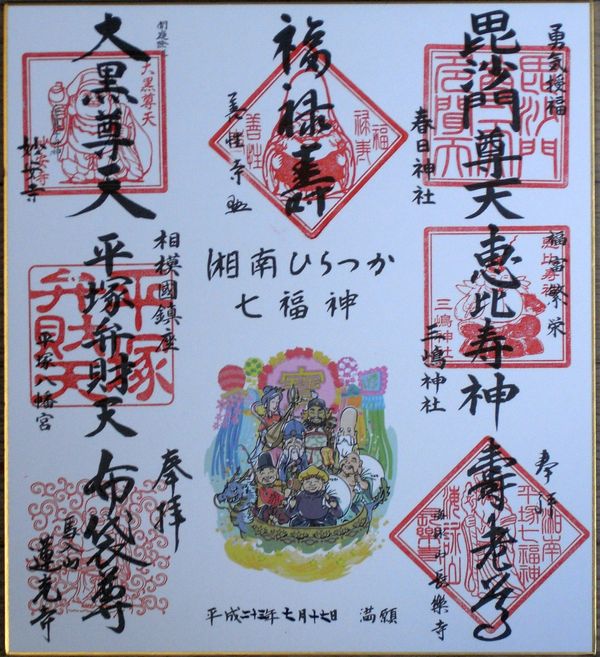 勇気授福
毘沙門尊天
春日神社
毘沙門
福富繁栄
恵比寿神
三嶋神社
恵比寿神
三嶋神社
奉拝
寿老尊
長樂寺
湘南
平塚七福神
福禄寿
善性寺
福
禄寿
善性
湘南ひらつか
七福神
寳
平成二十三年七月十七日 満願
大黒尊天
大黒尊天
妙安寺
相模國鎮座
平塚弁財天
平塚八幡宮
平塚
弁財天
奉拝
布袋尊
馬入山
蓮光寺